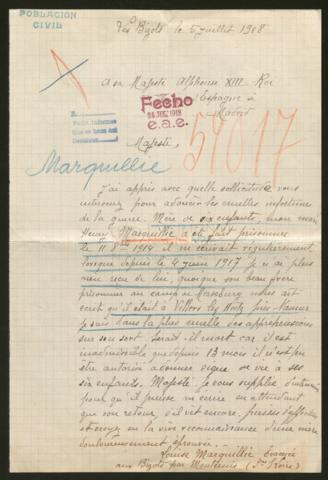 POBLACIÓN
CIVIL
Les Bizots le 5 juillet 1918
A sa Majesté Alphonse XIII Roi
Espagne à
Madrid
Fecho
e.a.e.
59017
Majesté,
Marquillie
J'ai appris avec quelle sollicitude vous
intervenez pour adoucir les cruelles
de la guerre. Mère de six enfants, mon mari
Henri Marquillie a été fait prisonnier
le 11 8bre 1914 il m'écrivait régulièrement
lorsque depuis le 4 juin 1917 je n'ai plus
rien reçu de lui, quoique son beau frère
prisonnier au camp m'ait
écrit qu'il était à Villers les près Namur
Je suis dans la plus cruelle des appréhensions
sur son sort. Serait-il mort car il est
inadmissible que depuis 13 mois il n'est pu
être autorisé à donner signe de vie à ses
six enfants. Majesté je vous supplie d'intervenir
pour qu'il puisse m'écrire en attendant
que son retour, s'il vit encore,
et croyez en la vive reconnaissance d'une mère
douloureusement éprouvée.
Louise Marquillie Evacuée
aux Bizots par Montcenis (Sne Loire)